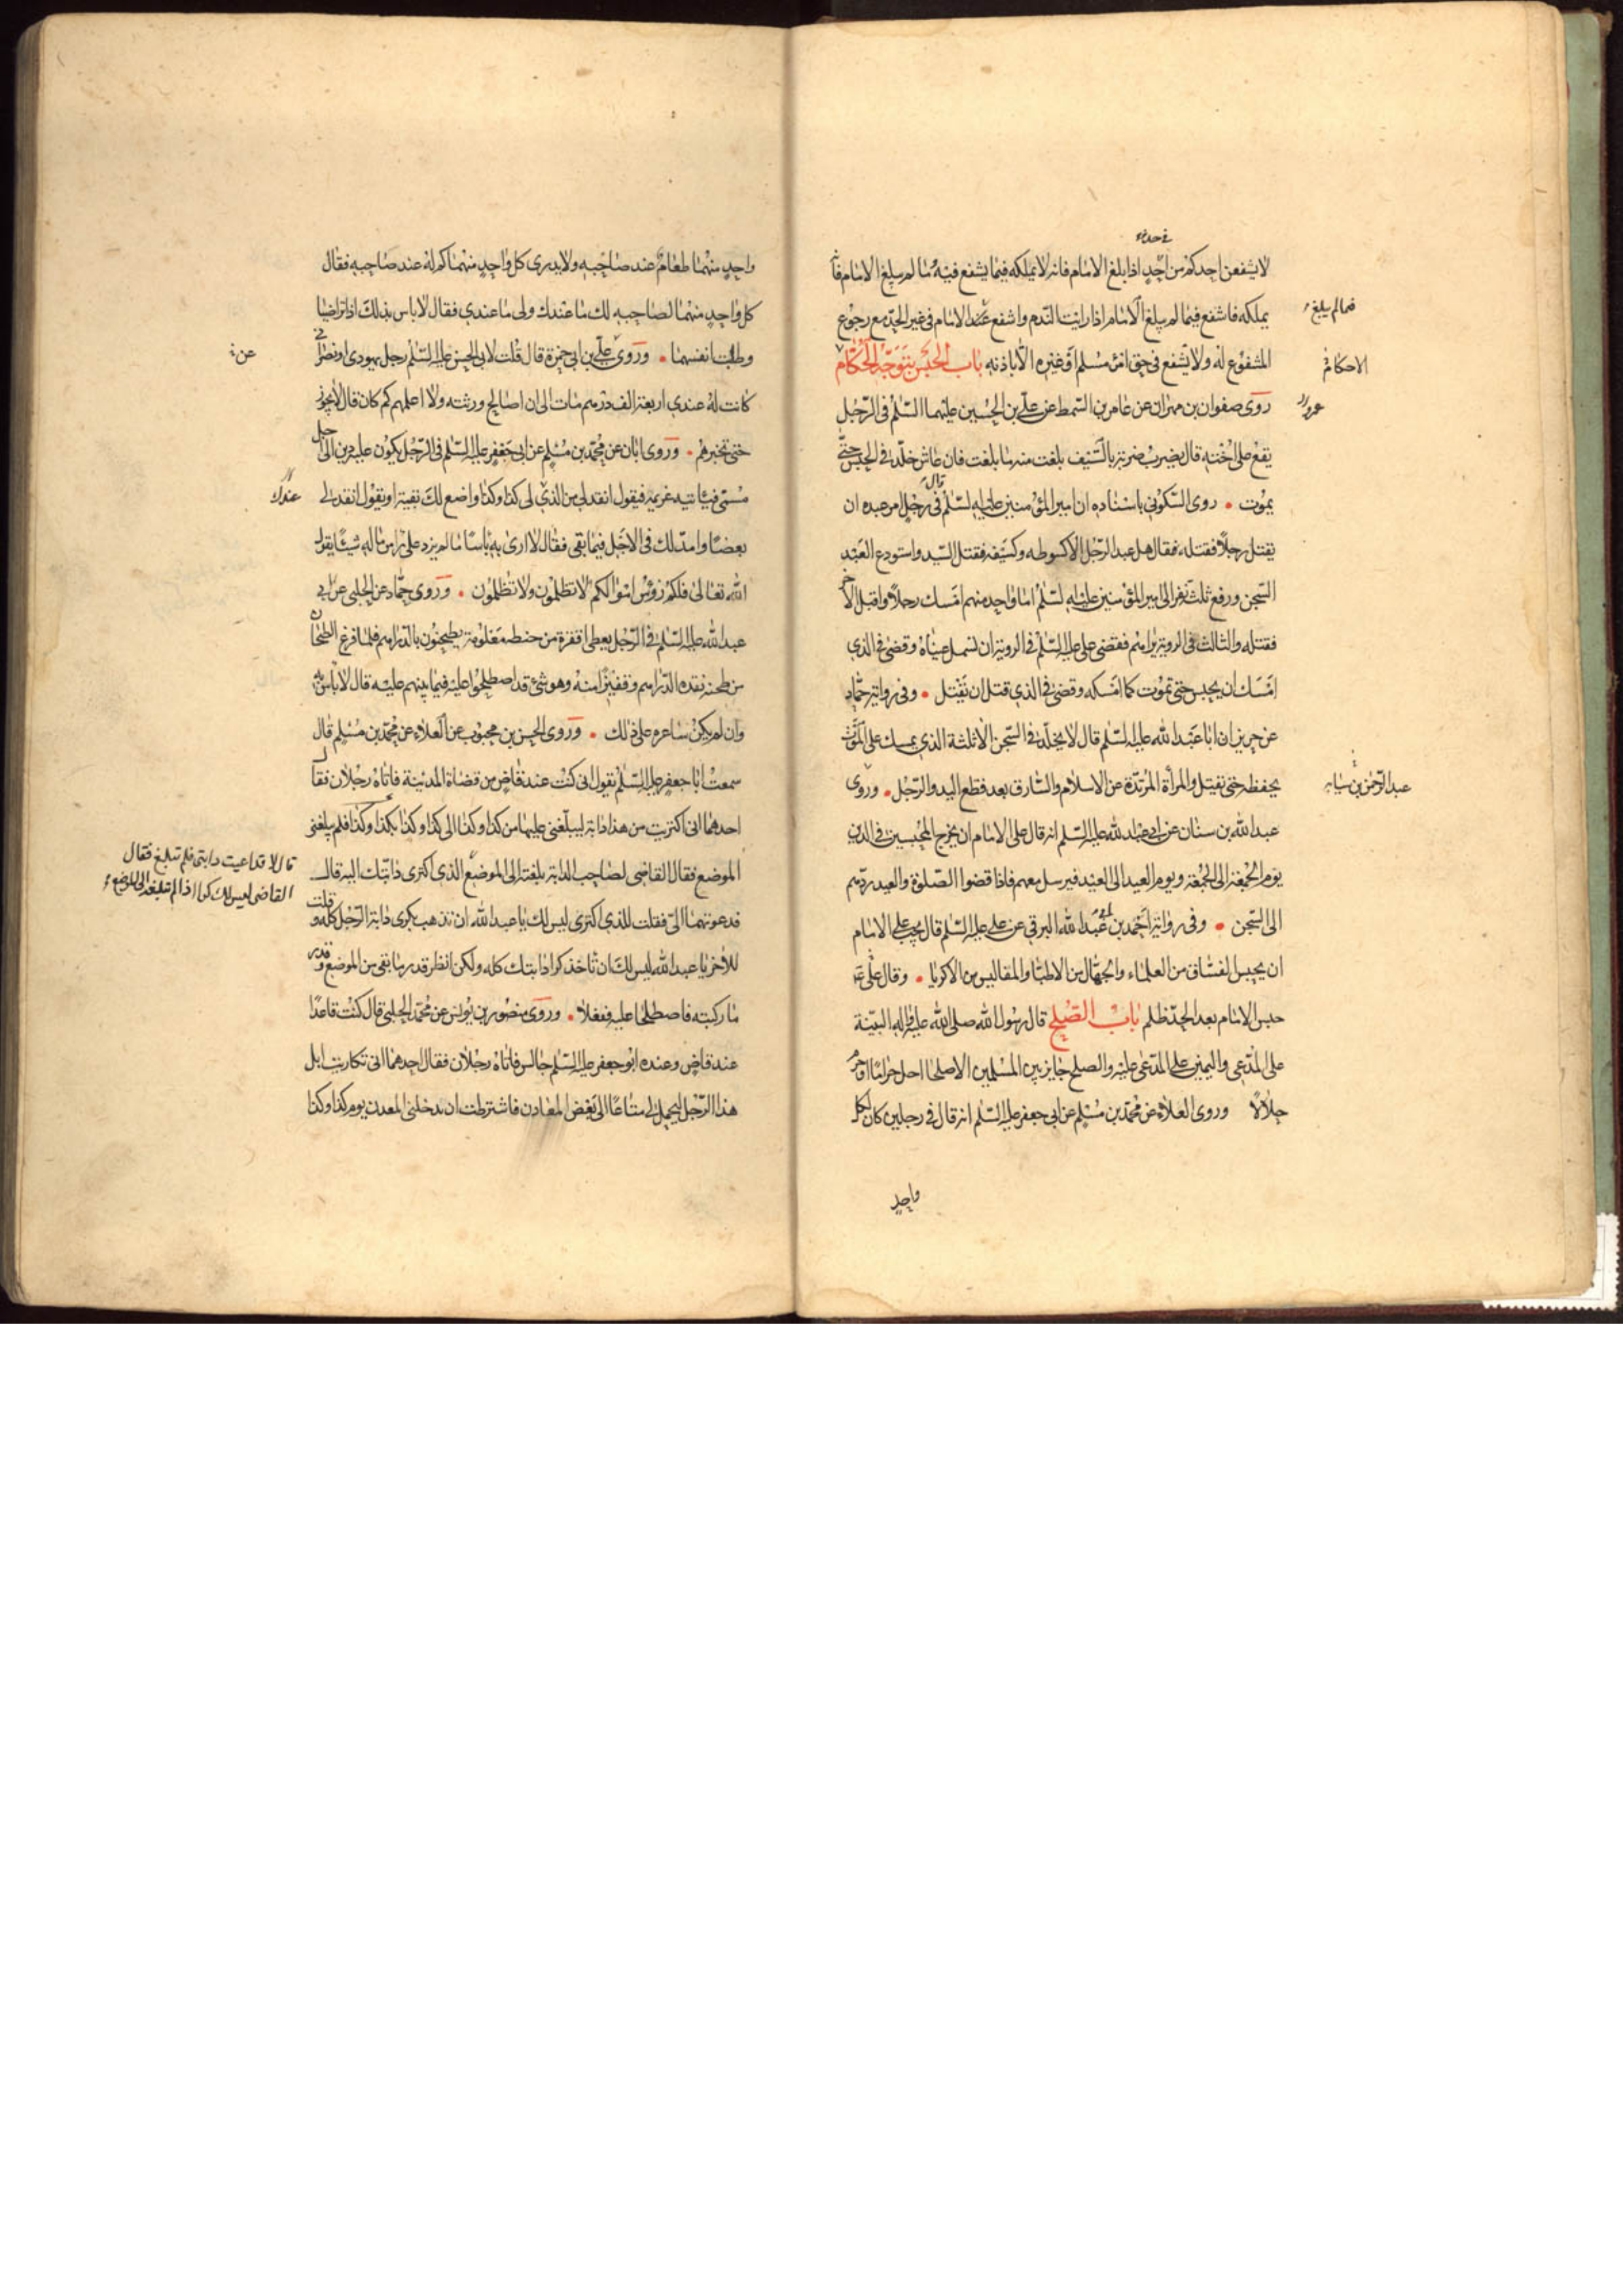 في حد
لا يشفعن احدكم من احد اذا بلغ الامام فانه لا يملكه فيما يشفع فيه وما لم يبلغ الامام فانه
يملكه فاشفع فيما لم يبلغ الامام اذا رايت الندم واشفع عند الامام في غير الحد مع رجوع
فيما لم يبلغ
المشفوع له ولا تشفع في حق امرئ مسلم او غيره الا باذنه باب الحبس بتوجه الاحكام
الاحكام
روى صفوان بن مهران عن عامر بن السمط عن علي بن الحسين عليهما السلم في الرجل
يقع على اخته قال يضرب ضربة بالسيف بلغت منه ما بلغت فان عاش خلد في الحبس حتى
يموت روى السكوني باسناده ان امير المؤمنين عليه السلم قال في رجل امر عبده ان
يقتل رجلا فقتله فقال هل عبد الرجل الا كسوطه وكسيفه فقتل السيد واستودع العبد
السجن ورفع ثلثة نفر الى امير المؤمنين عليه السلم اما واحد منهم امسك رجلا واقبل الاخر
فقتله والثالث في الروية يراهم فقضى علي عليه السلم في الروية ان تسمل عيناه وقضى في الذي
امسك ان يحبس حتى يموت كما امسكه وقضى في الذي قتل ان يقتل وفي رواية حماد
عن حريز ان ابا عبد الله عليه السلم قال لا يخلد في السجن الا ثلثة الذي يمسك على الموت
يحفظه حتى يقتل والمرأة المرتدة عن الاسلام والسارق بعد قطع اليد والرجل وروى
عبد الرحمن بن سيابه
عبد الله بن سنان عن ابي عبد الله عليه السلم انه قال على الامام ان يخرج المحبسين في الدين
يوم الجمعة الى الجمعة ويوم العيد الى العيد فيرسل معهم فاذا قضوا الصلوة والعيد ردهم
الى السجن وفي رواية احمد بن ابي عبد الله البرقي عن علي عليه السلم قال يجب على الامام
ان يحبس الفساق من العلماء والجهال من الاطباء والمفاليس من الاكريا وقال علي ع
حبس الامام بعد الحد ظلم باب الصلح قال رسول الله صلى الله عليه واله البينة
على المدعي واليمين على المدعى عليه والصلح جايز بين المسلمين الا صلحا احل حراما او حرم
حلالا وروى العلاء عن محمد بن مسلم عن ابي جعفر عليه السلم انه قال في رجلين كان لكل
واحد
واحد منهما طعام عند صاحبه ولا يدري كل واحد منهما كم له عند صاحبه فقال
كل واحد منهما لصاحبه لك ما عندك ولي ما عندي فقال لا باس بذلك اذا تراضيا
وطابت انفسهما وروى علي بن ابي حمزة قال قلت لابي الحسن عليه السلم رجل يهودي او نصراني
عن
كانت له عندي اربعة الف درهم مات الى ان اصالح ورثته ولا اعلمهم كم كان قال لا يجوز
حتى تخبرهم وروى ابان عن محمد بن مسلم عن ابي جعفر عليه السلم في الرجل يكون عليه دين الى اجل
مسمى فياتيه غريمه فيقول انقد لي من الذي لي كذا وكذا واضع لك بقيته او يقول انقد لي
عندك
بعضا وامد لك في الاجل فيما بقي فقال لا ارى به باسا ما لم يزد على راس ماله شيئا يقول
الله تعالى فلكم رؤس اموالكم لا تظلمون ولا تظلمون وروى حماد عن الحلبي عن ابي
عبد الله عليه السلم في الرجل يعطي اقفزة من حنطه معلومة يطحنون بالدراهم فلما فرغ الطحان
من طحنه نقده الدراهم وقفيزا منه وهو شئ قد اصطلحوا عليه فيما بينهم عليه قال لا باس به
وان لم يكن ساعره على ذلك وروى الحسن بن محبوب عن العلاء عن محمد بن مسلم قال
سمعت ابا جعفر عليه السلم يقول اني كنت عند قاض من قضاة المدينة فاتاه رجلان فقال
احدهما اني اكتريت من هذا دابة ليبلغني عليها من كذا وكذا الى كذا وكذا بكذا وكذا فلم يبلغني
الموضع فقال القاضي لصاحب الدابة بلغته الى الموضع الذي اكترى دابتك اليه قال
قال لا قد اعيت دابتي فلم تبلغ فقال
القاضي ليس لك كرا اذا لم تبلغه الى الموضع
فدعوتهما الي فقلت للذي اكترى ليس لك يا عبد الله ان تذهب بكرى دابة الرجل كله وقلت
للاخر يا عبد الله ليس لك ان تاخذ كرا دابتك كله ولكن انظر قدر ما بقي من الموضع وقدر
ما ركبته فاصطلحا عليه ففعلا وروى منصور بن يونس عن محمد الحلبي قال كنت قاعدا
عند قاض وعنده ابو جعفر عليه السلم جالس فاتاه رجلان فقال احدهما اني تكاريت ابل
هذا الرجل ليحمل لي متاعا الى بعض المعادن فاشترطت ان يدخلني المعدن يوم كذا وكذا